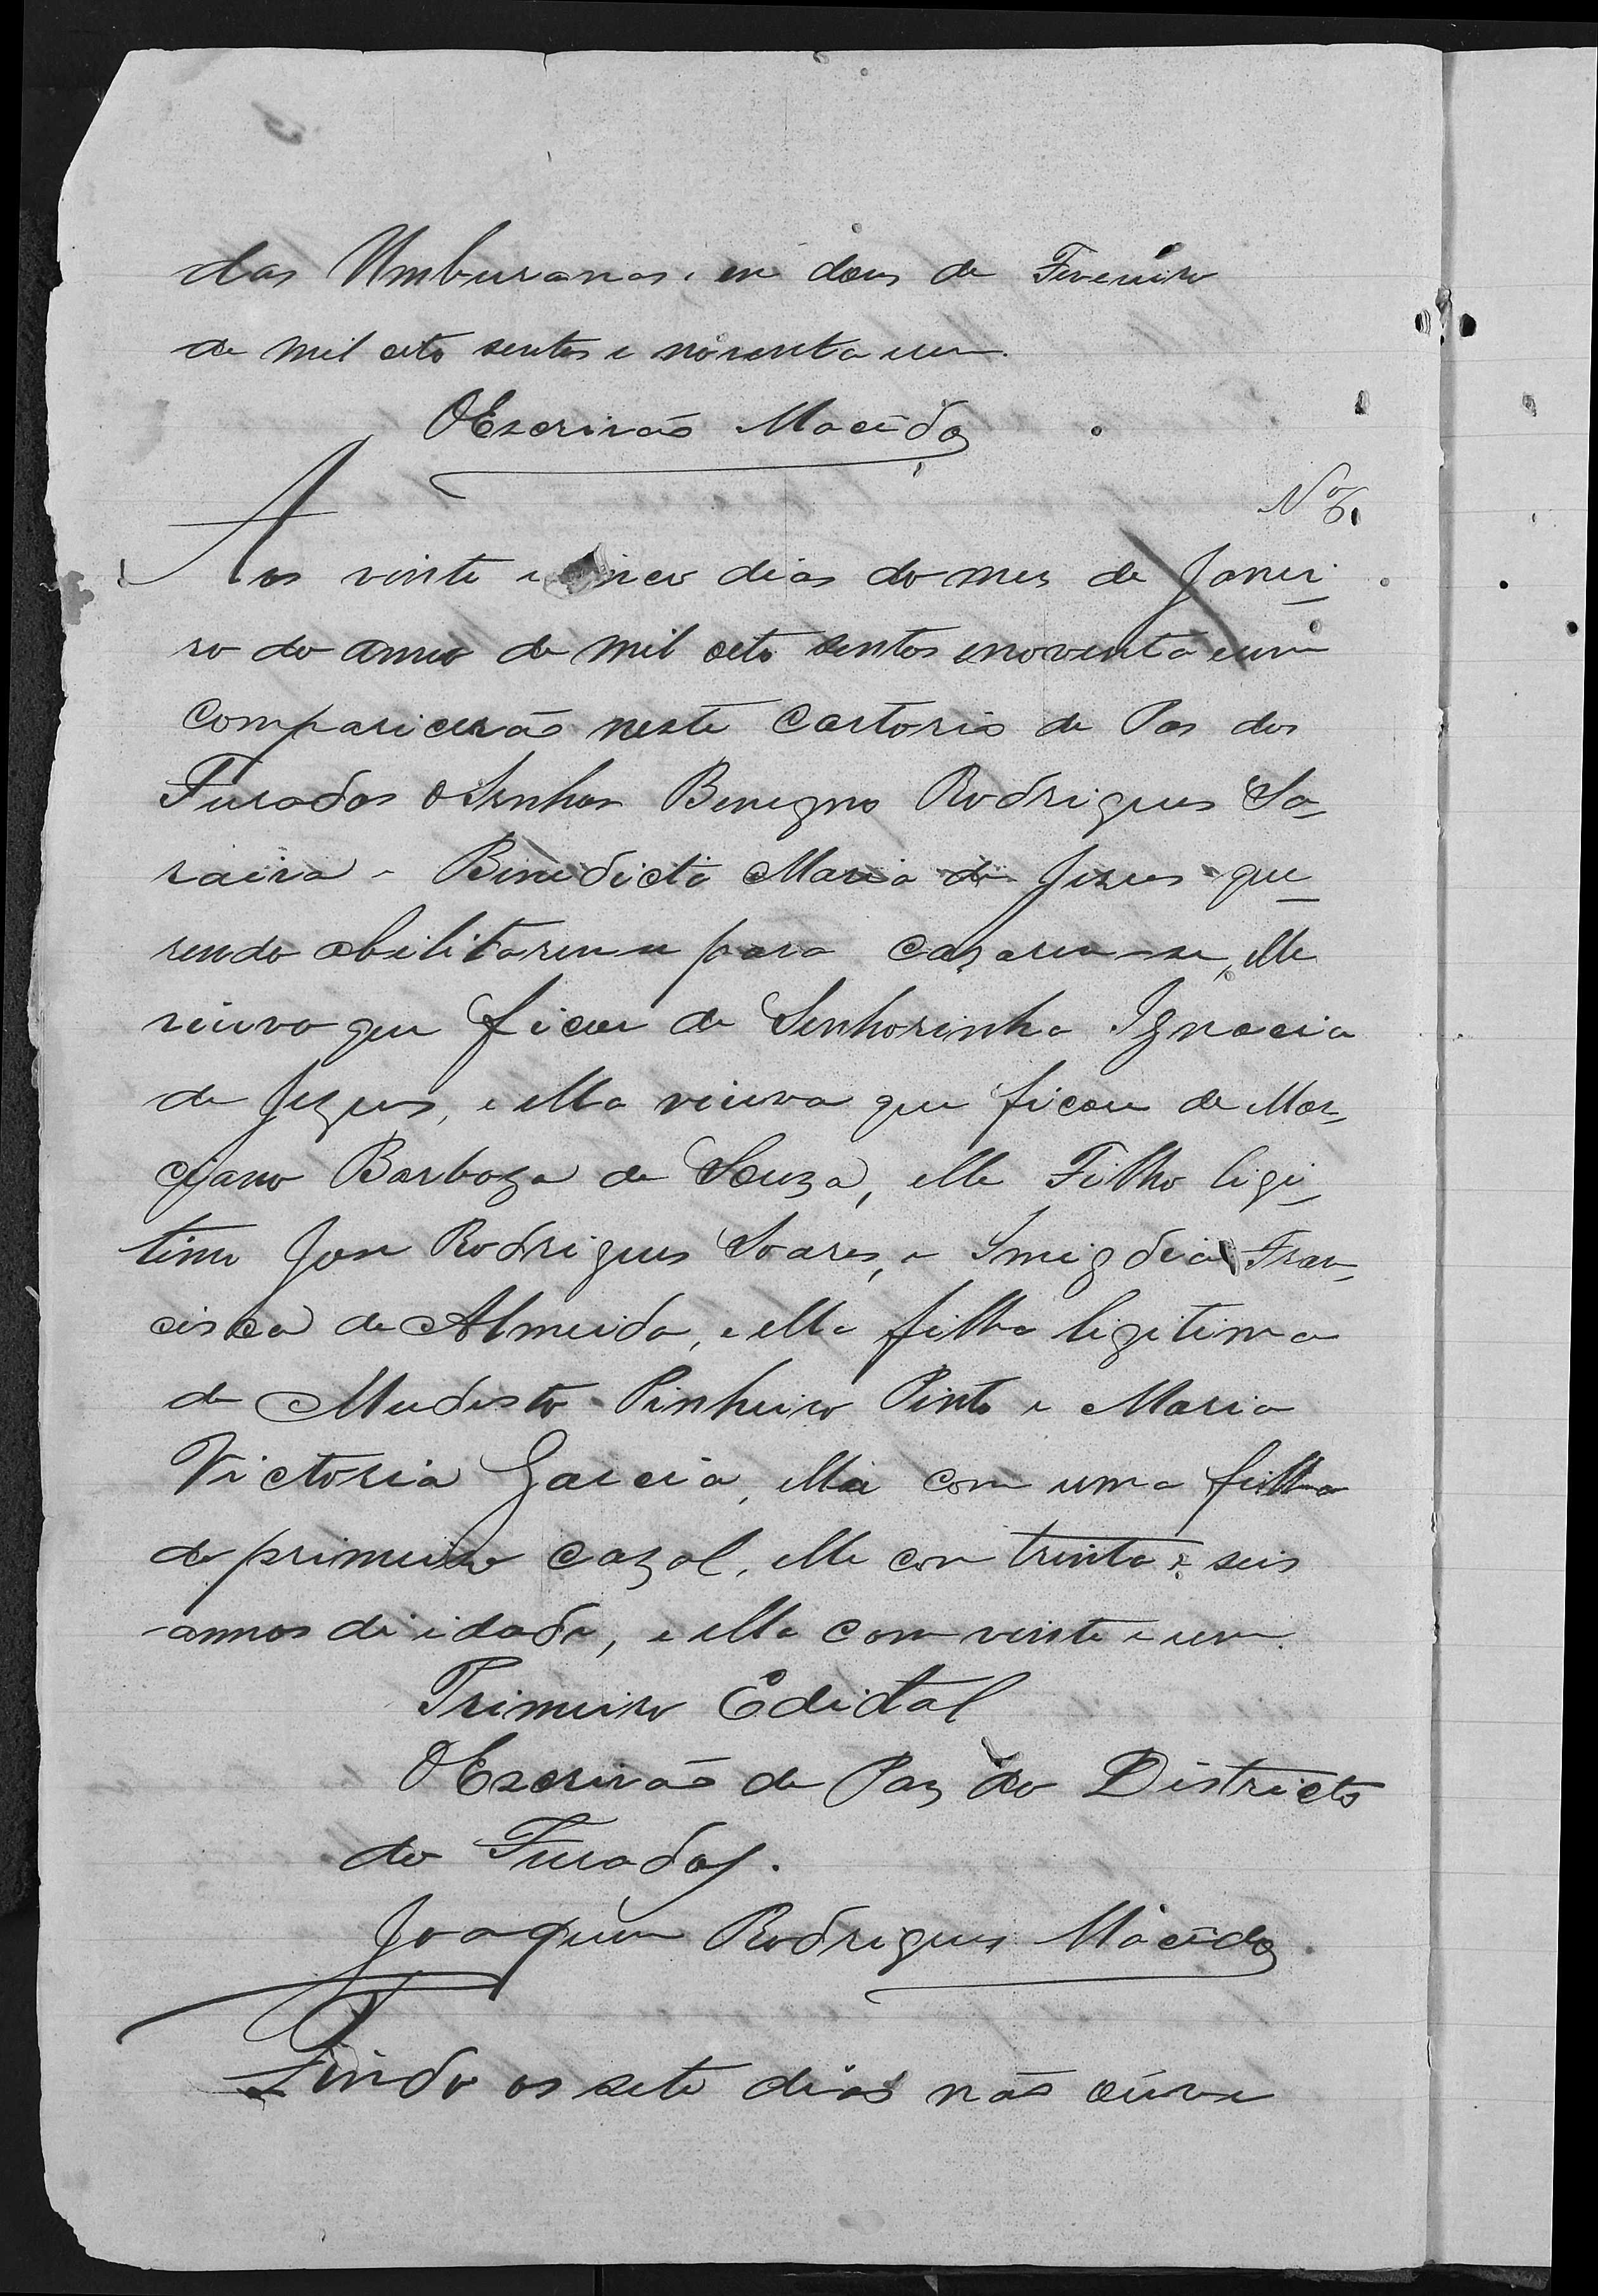 das Umburanas, em dous de Fevereiro
de mil oito sentos e noventa e um.
O Escrivão Macêdo
Nº 6.
Aos vinte e cinco dias do mes de Janei-
ro do anno de mil oito sentos e noventa e um
Compariceráo neste Cartorio de Pas dos
Furados o Senhor Benigno Rodrigues Sa-
raiva e Binedicta Maria de Jezus que-
rendo abilitarem se para cazarem-se, elle
viuvo que ficou de Senhorinha Ignacia
de Jezus, e ella viuva que ficou de Mar-
ciano Barboza de Souza, elle Filho ligi-
timo Jose Rodrigues Soares, e Imigdia Fran-
cisca de Almeida, e ella filha ligitima
de Mudesto Pinheiro Pinto e Maria
Victoria Garcia, ella com uma filha
do primeiro cazal, elle com trinta e seis
annos di idade, e ella com vinte e um.
Primeiro Edital
O Escrivão de Paz do Districto
do Furados.
Joaquim Rodrigues Macêdo.
Findo os sete dias não ouve